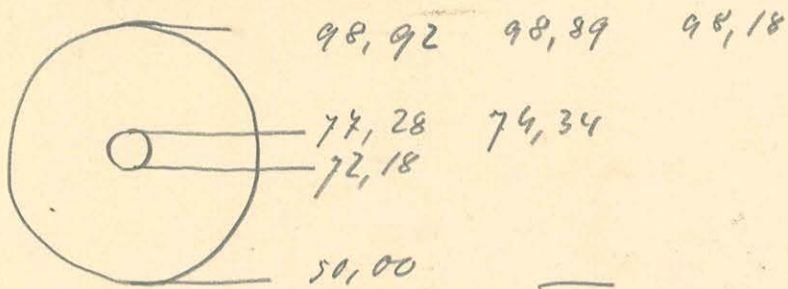 98,92 98,89 98,18
77,28 74,34
72,18
50,00